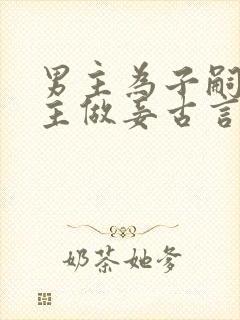 男主为子嗣
主做妾古言
奶茶她爹